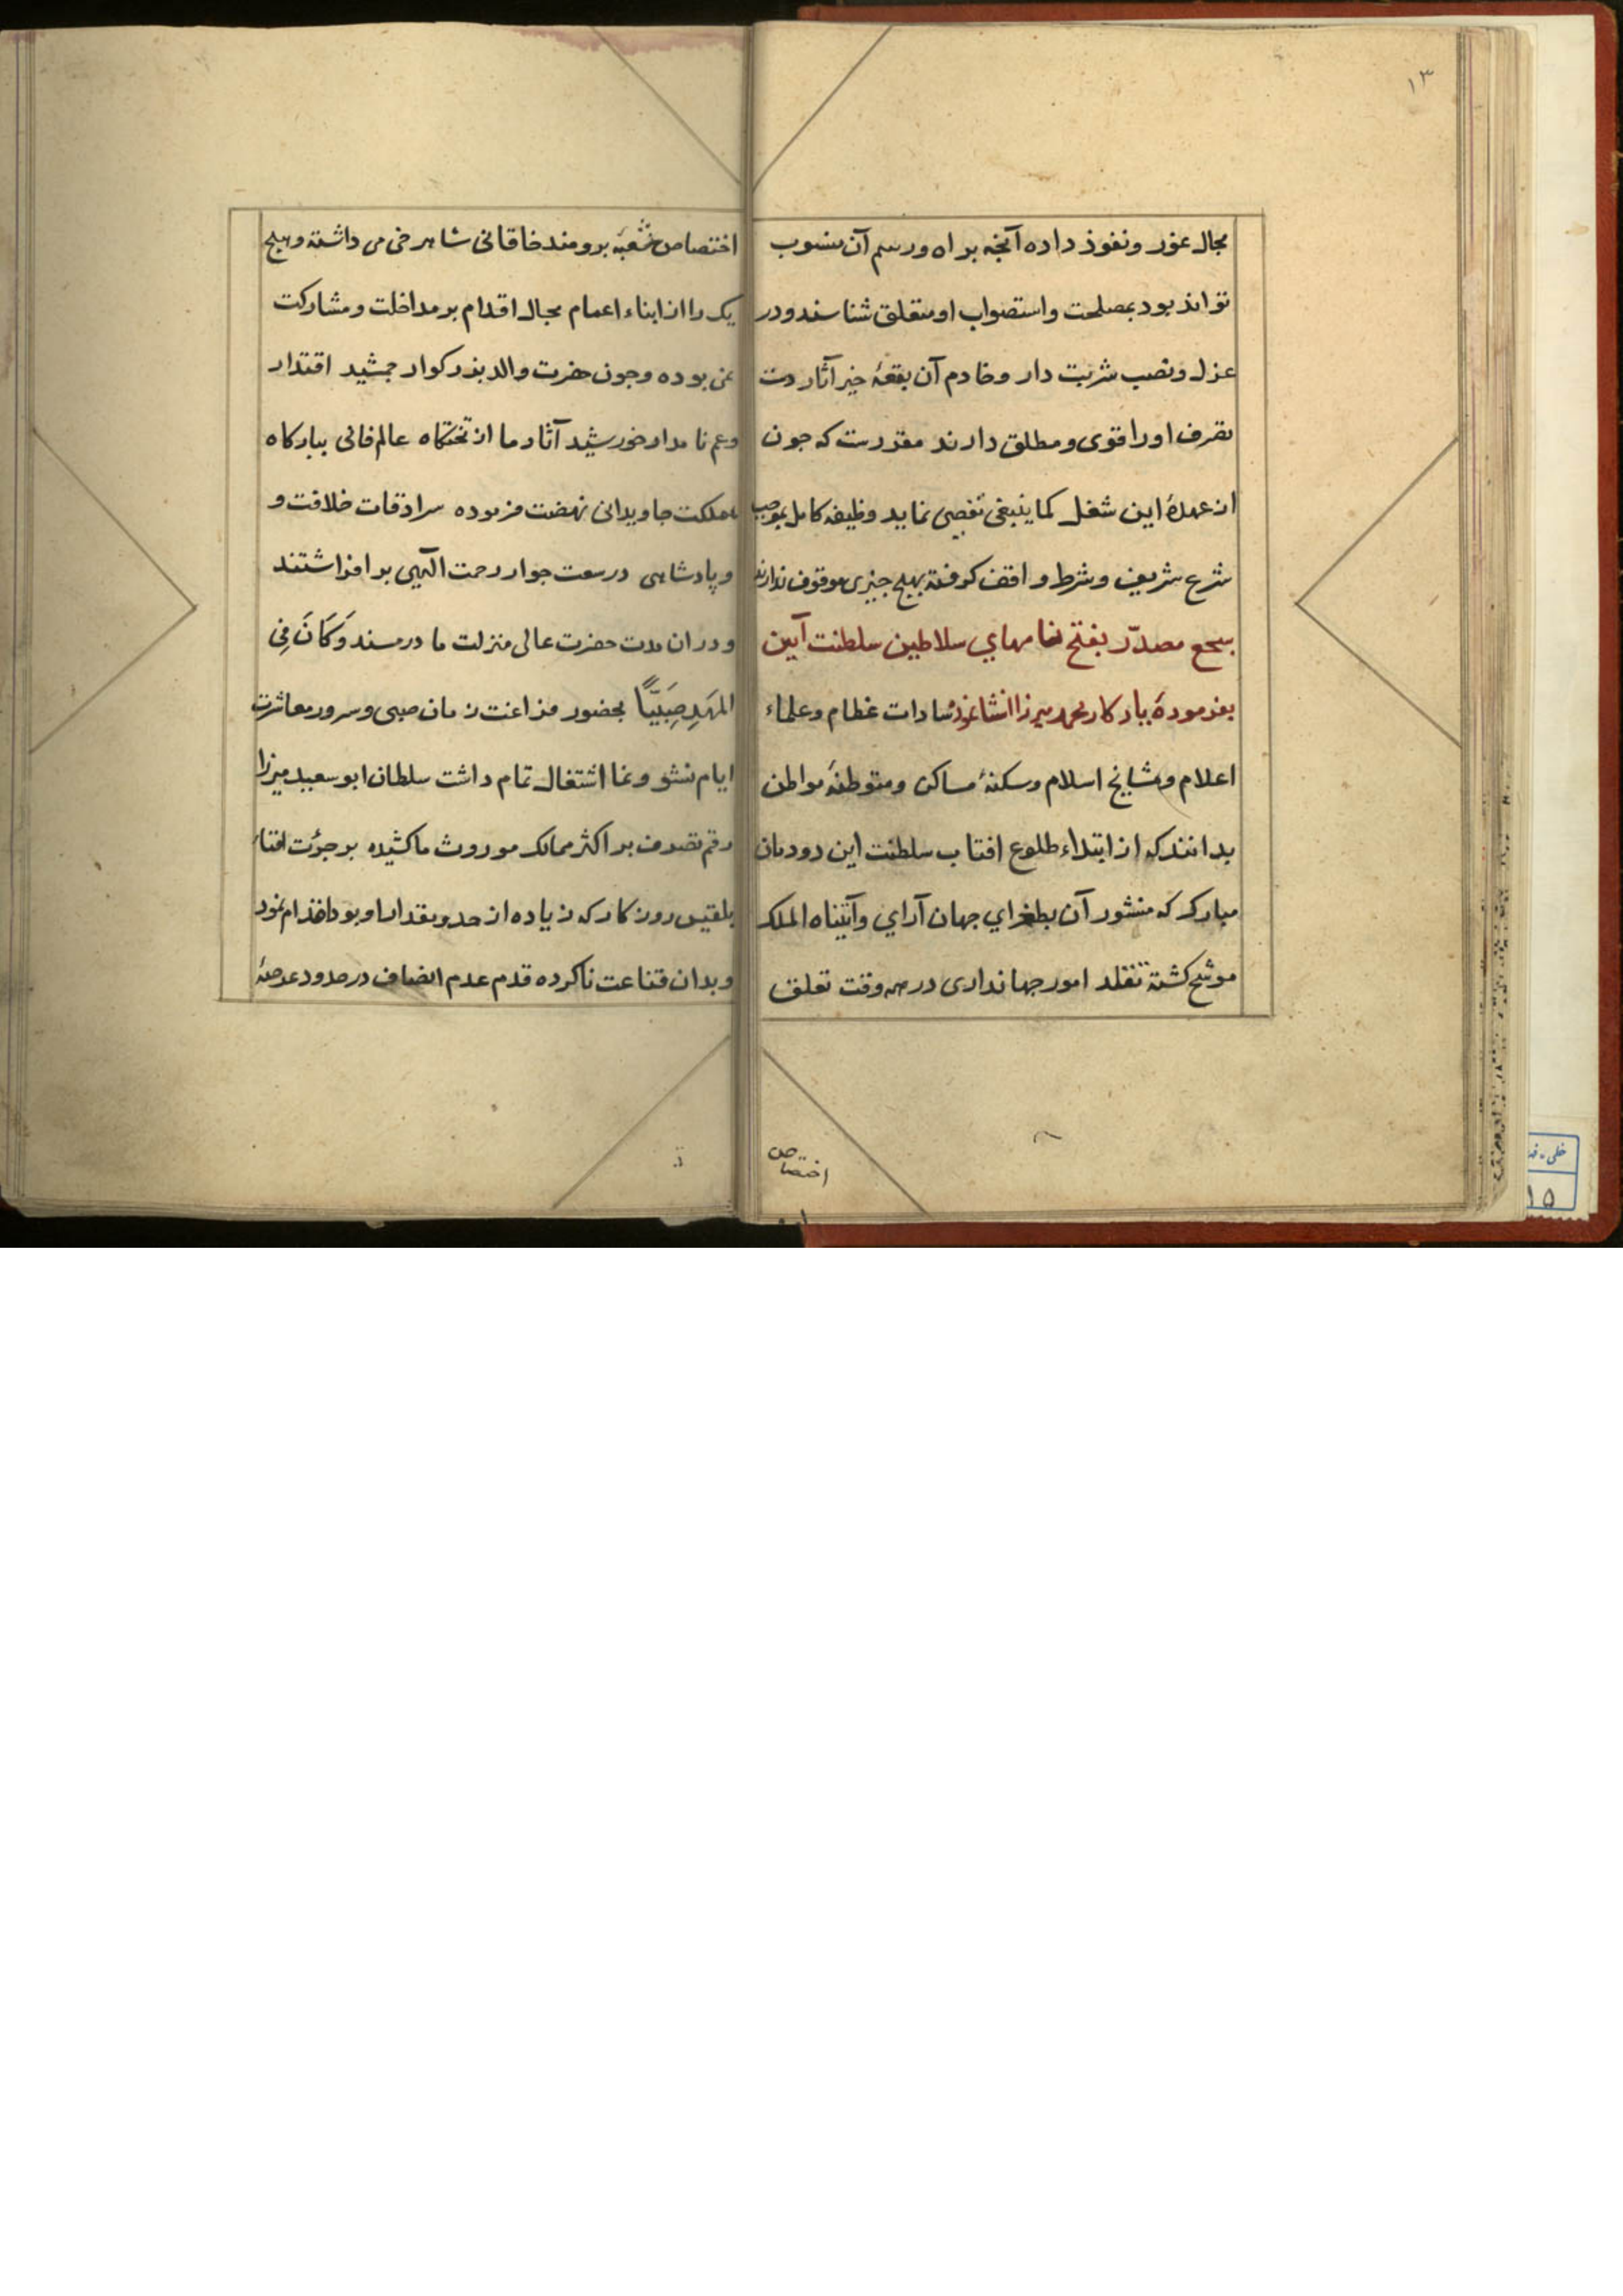 ۱۳
مجال عور و نفوذ داده آنچه براه و رسم آن منسوب
تواند بود بمصلحت و استصواب او متعلق شناسند و در
عزل و نصب شربت دار و خادم آن بقعهٔ خیر آثار دست
تصرف او را قوی و مطلق دارند مقررست که جون
از عهدهٔ این شغل کما ینبغی تفصی نماید وظیفه کامل بموجب
شرع شریف و شرط واقف کوفته بهیچ جیزی موقوف ندارند
سجع مصدّر بفتح نامهای سلاطین سلطنت آیین
بفرمودهٔ یادکار محمد میرزا انشا نموده سادات عظام و علماء
اعلام و مشایخ اسلام و سکنهٔ مساکن و متوطنهٔ مواطن
بدانند که از ابتداء طلوع افتاب سلطنت این دودمان
مبارک که منشور آن بطغرای جهان آرای وآتیناه الملک
موشح کشته تقلد امور جهانداری در همه وقت تعلق
اختصاص
اختصاص شعبهٔ برومند خاقانی شاهرخی می داشته و هیچ
یک را از ابناء اعمام مجال اقدام بر مداخلت و مشارکت
نمی بوده و جون حضرت والد بزرکوار جمشید اقتدار
و عم نامدار خورشید آثار ما از تختکاه عالم فانی ببارکاه
مملکت جاویدانی نهضت فرموده سرادقات خلافت و
و پادشاهی در سعت جوار رحمت الهی بر افراشتند
و در ان مدت حضرت عالی منزلت ما در مسند وَکَانَ فِی
المَهدِ صَبَیّاً بحضور فراغت زمان صبی و سرور معاشرت
ایام نشو و نما اشتغال تمام داشت سلطان ابو سعید میرزا
رقم تصرف بر اکثر ممالک موروث ما کشیده بر جرئت
بلقیس روزکار که زیاده از حد و مقدار او بود اقدام نمود
و بدان قناعت ناکرده قدم عدم انصاف در حدود عرصهٔ
۱۵